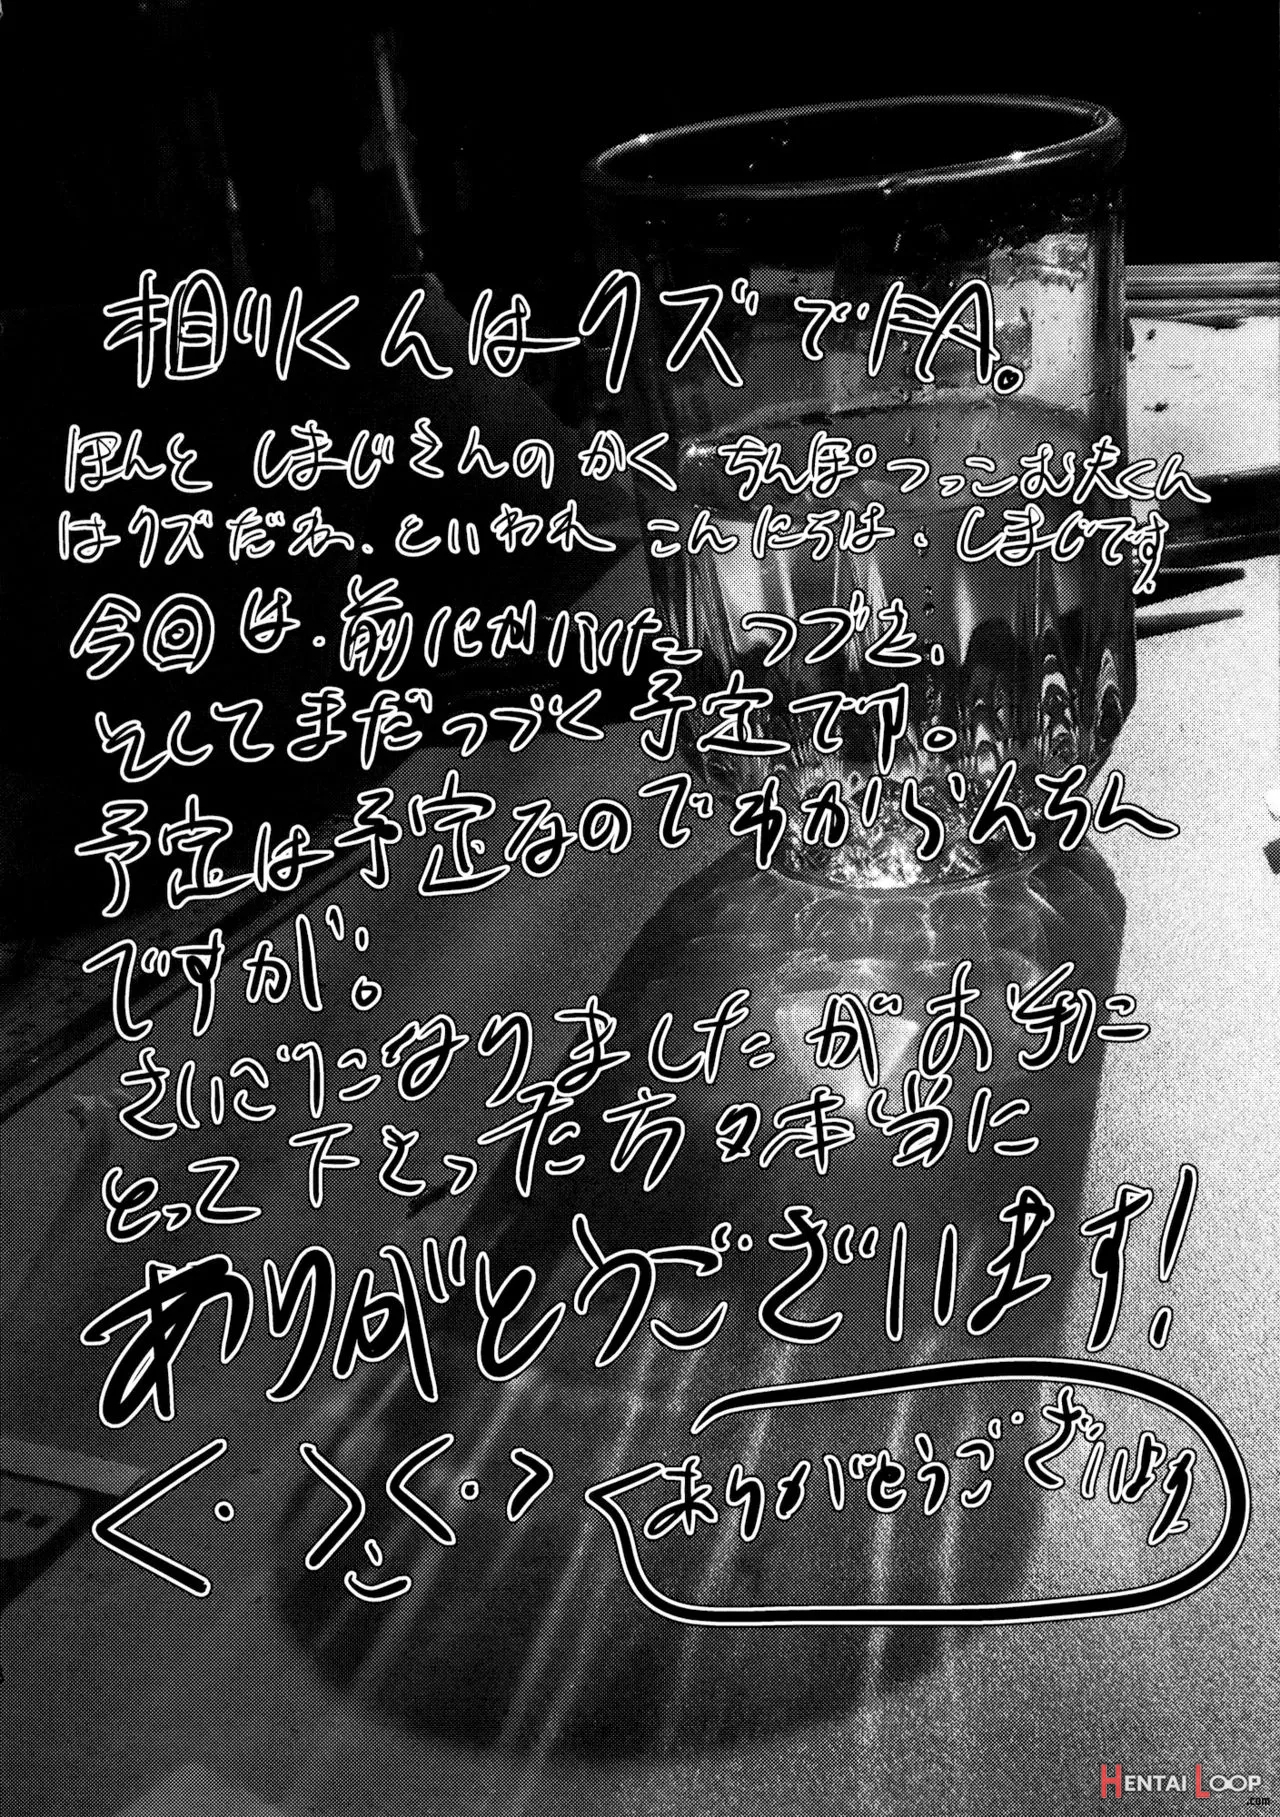 相川くんはクズでFA。
ほんと しまじさんの かく ちんぽつっこむ夫くん
はクズだね、といわれ こんにちは、しまじです
今回は、前にかいた つづき、
そしてまだつづく予定です。
予定は予定なのでわからんちん
ですが!。
さいごになりましたがお手に
とって下さった方々本当に
ありがとうございます!
く・>く・>
ありがとうござい
HENTAI LOOP
.com